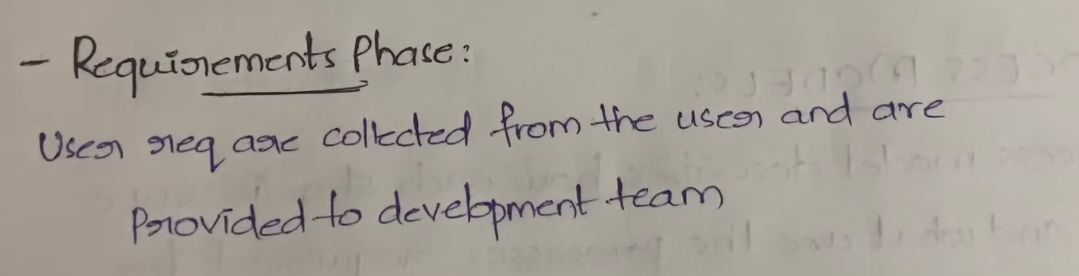 - Requirements Phase:
User req are collected from the user and are
Provided to development team